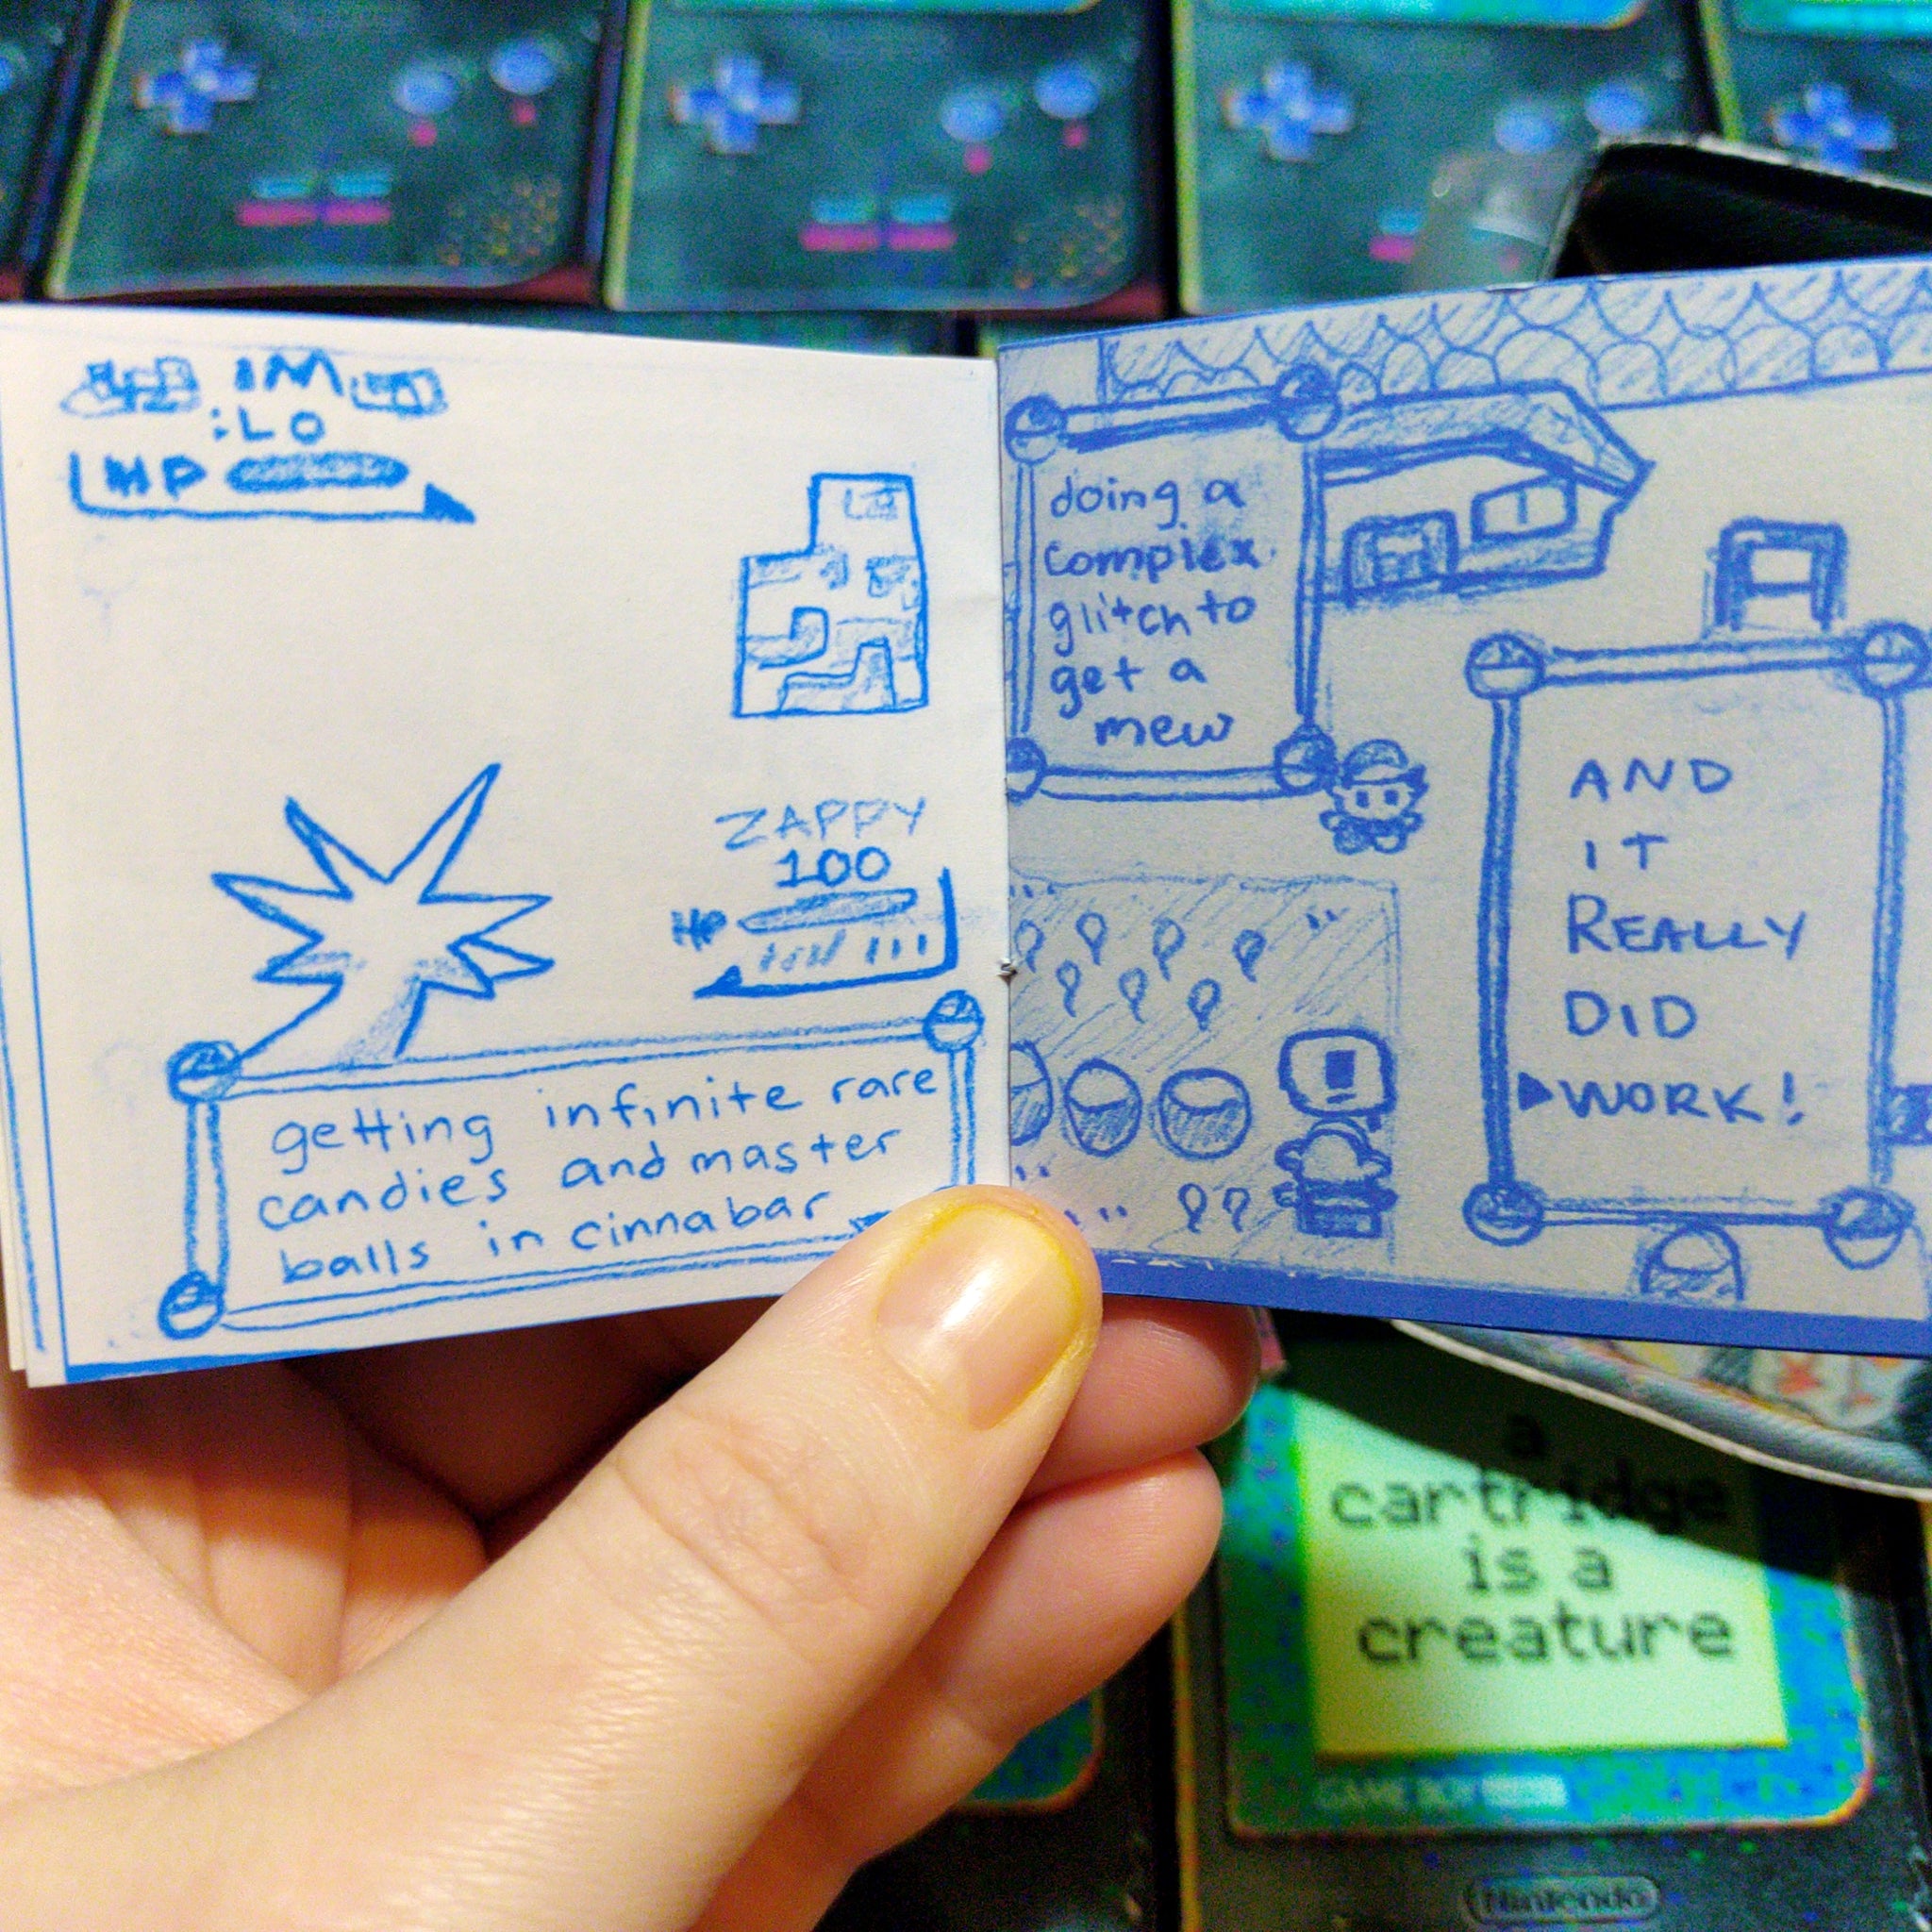 IM
:LO
HP
ZAPPY
100
HP
getting infinite rare
candies and master
balls in cinnabar
doing a
complex
glitch to
get a
mew
AND
IT
REALLY
DID
▶WORK!
a
cartridge
is a
creature
GAME BOY
Nintendo